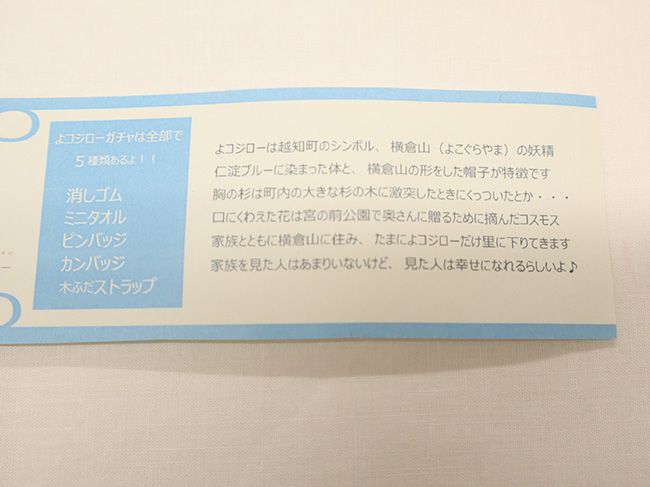 よコジローガチャは全部で
5種類あるよ！！
消しゴム
ミニタオル
ピンバッジ
カンバッジ
木ふだストラップ
よコジローは越知町のシンボル、横倉山（よこぐらやま）の妖精
仁淀ブルーに染まった体と、横倉山の形をした帽子が特徴です
胸の杉は町内の大きな杉の木に激突したときにくっついたとか・・・
口にくわえた花は宮の前公園で奥さんに贈るために摘んだコスモス
家族とともに横倉山に住み、たまによコジローだけ里に下りてきます
家族を見た人はあまりいないけど、見た人は幸せになれるらしいよ♪